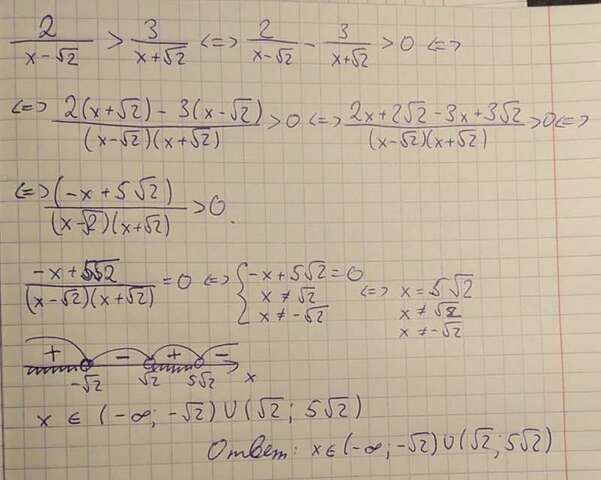 2/(x-√2) > 3/(x+√2) <=> 2/(x-√2) - 3/(x+√2) > 0 <=>
<=> (2(x+√2) - 3(x-√2))/((x-√2)(x+√2)) > 0 <=> (2x+2√2-3x+3√2)/((x-√2)(x+√2)) > 0 <=>
<=> (-x+5√2)/((x-√2)(x+√2)) > 0.
(-x+5√2)/((x-√2)(x+√2)) = 0 <=> { -x+5√2=0 <=> x=5√2
x≠√2 x≠√2
x≠-√2 x≠-√2
+ - + -
-√2 √2 5√2 x
x ∈ (-∞; -√2) U (√2; 5√2)
Ответ: x∈(-∞;-√2)U(√2;5√2)